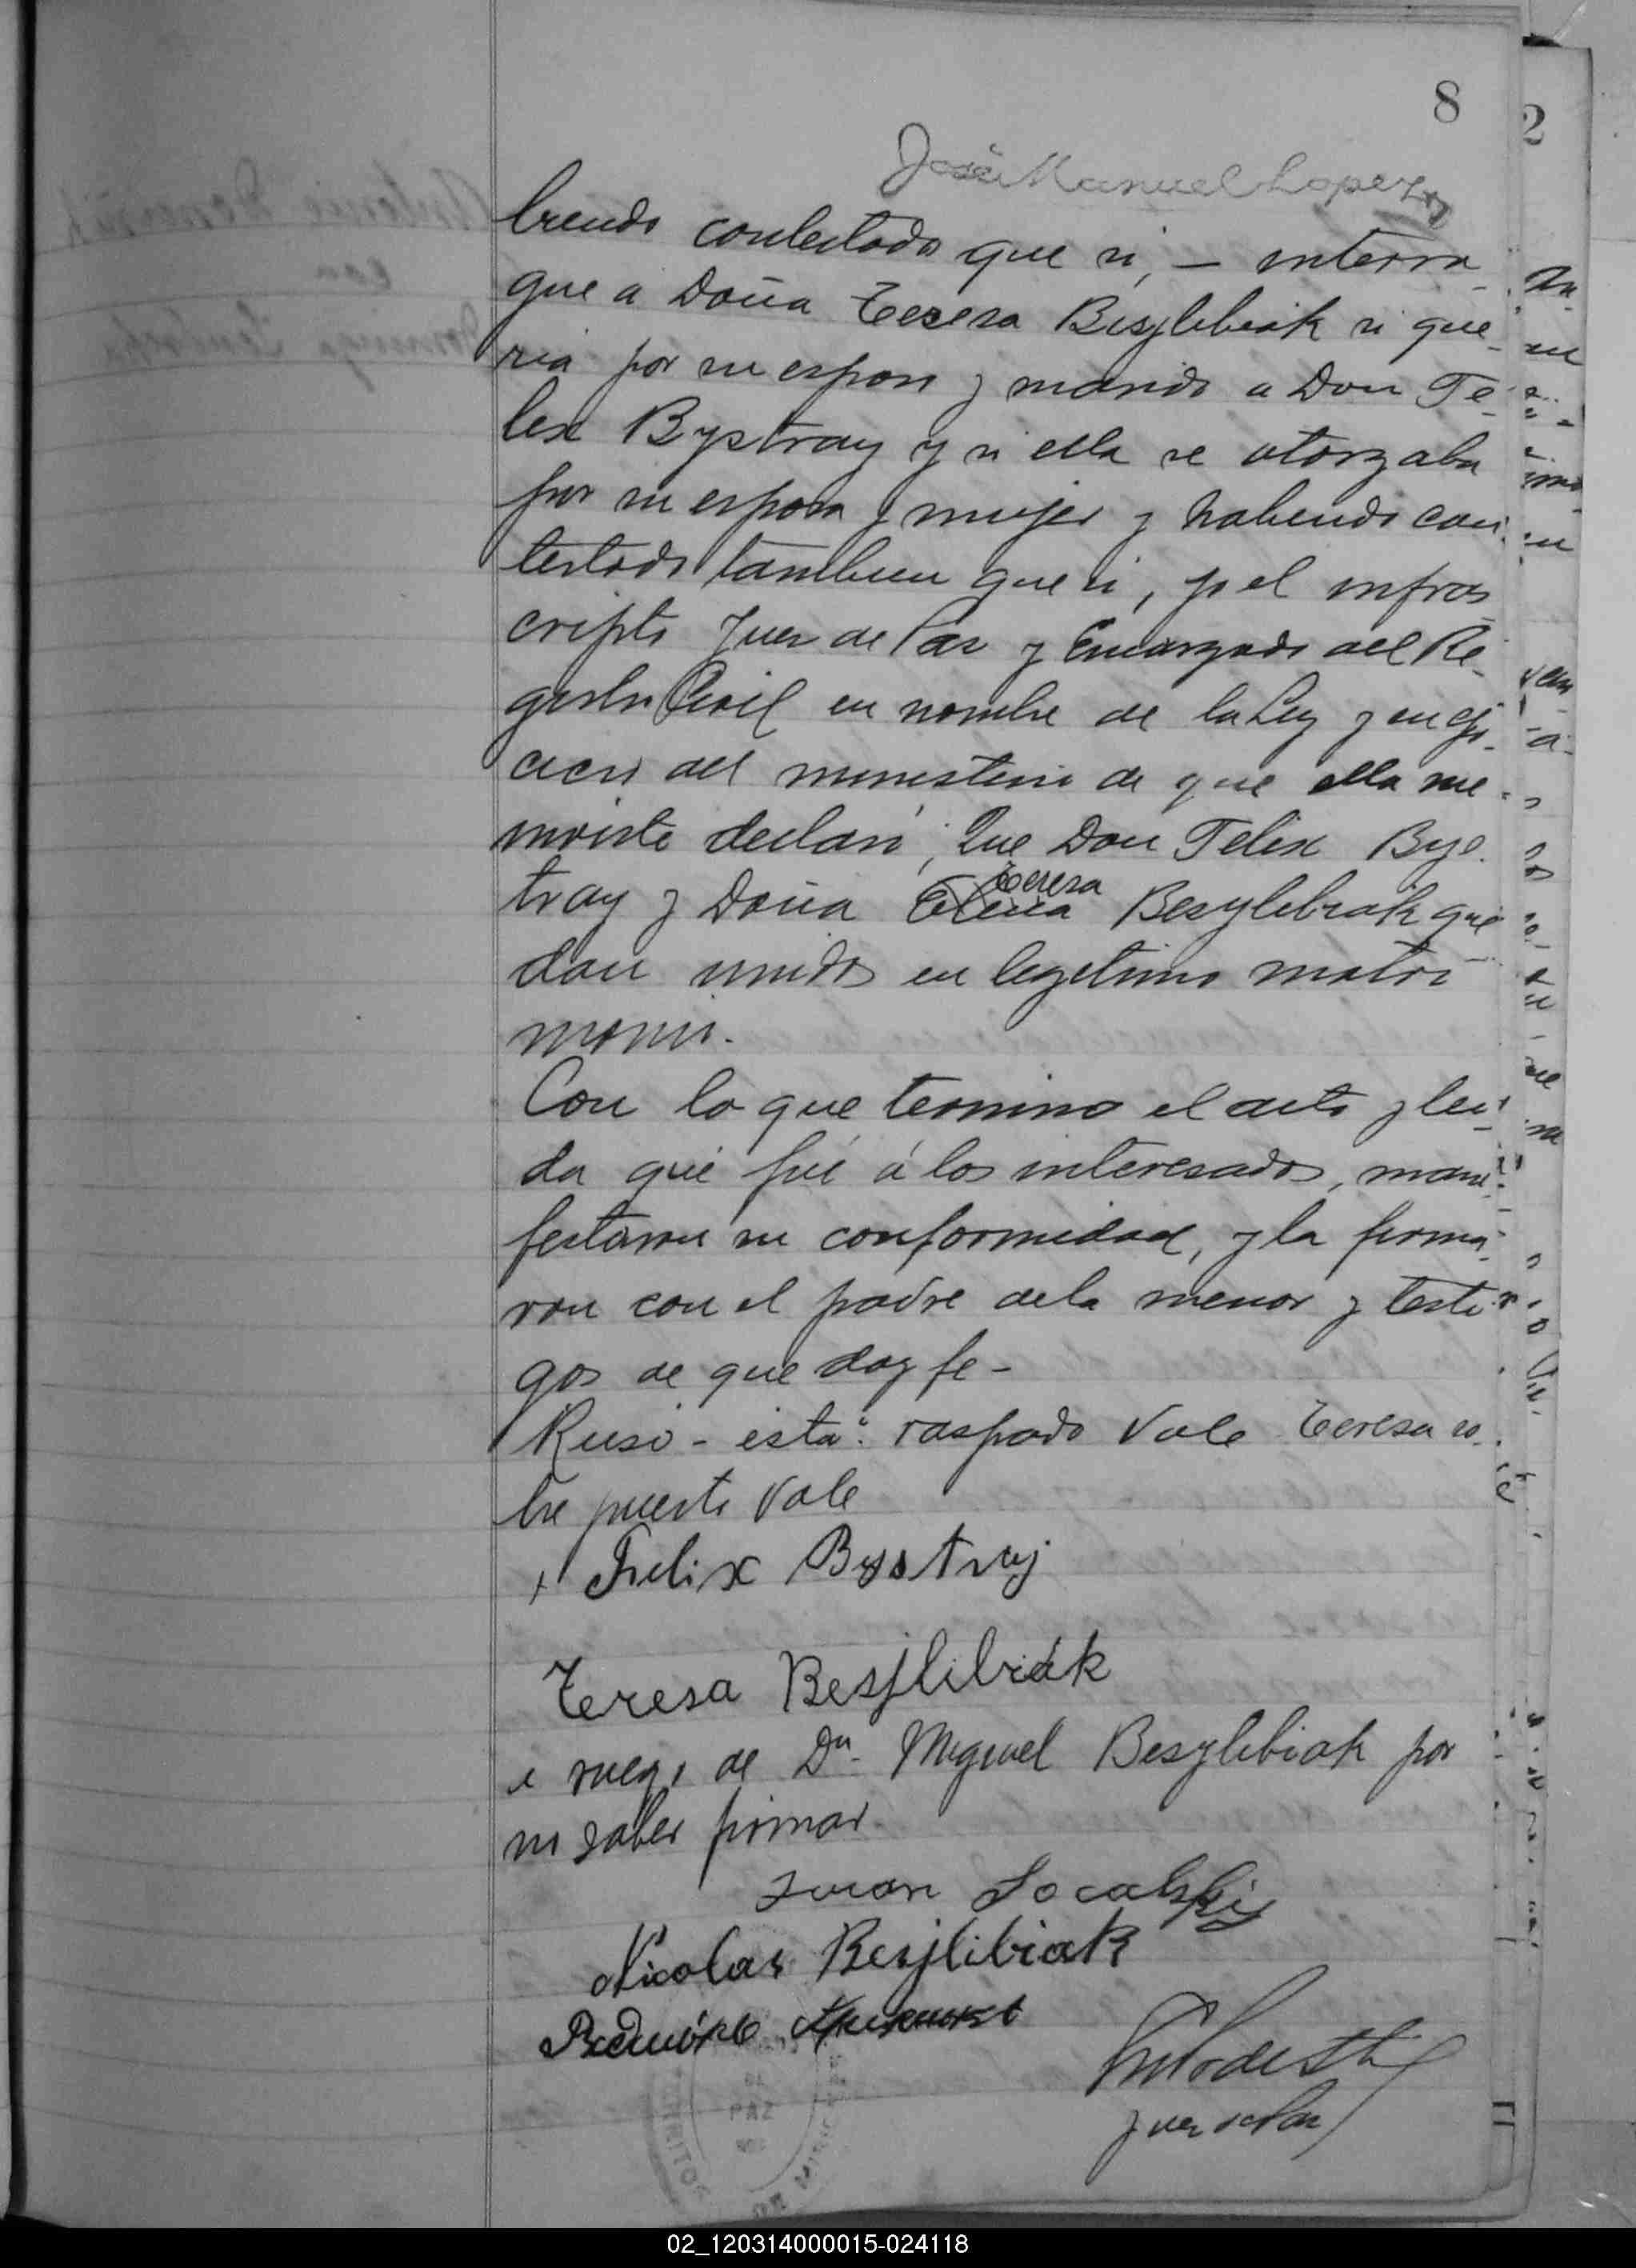 8
2
José Manuel Lopez
biendo contestado que si, – interro
que a Doña Teresa Besylibiak si que
ria por su esposo y marido a Don Fe
lix Bystray y si ella se otorgaba
por su esposa y mujer y habiendo con
testado tambien que si, yo el infras
cripto Juez de Paz y Encargado del Re
gistro Civil en nombre de la Ley y en eje
cicio del ministerio de que ella me
inviste declaro, Que Don Felix Bys
Teresa
tray y Doña Elena Besylibiak que
dan unidos en legitimo matri
monio.
Con lo que termino el acto y lei
da que fué á los interesados, mani
festaron su conformidad, y la firma
ron con el padre de la menor y testi
gos de que doy fe –
Ruso – está: raspado Vale Teresa so
bre puesto Vale
Felix Bystraj
Teresa Besjlibiák
a ruego de Dn Miguel Besylibiak por
no saber firmar
Juan Socalskiy
Nicolas Besjlibiak
Juez de Paz
PAZ
02_120314000015-024118